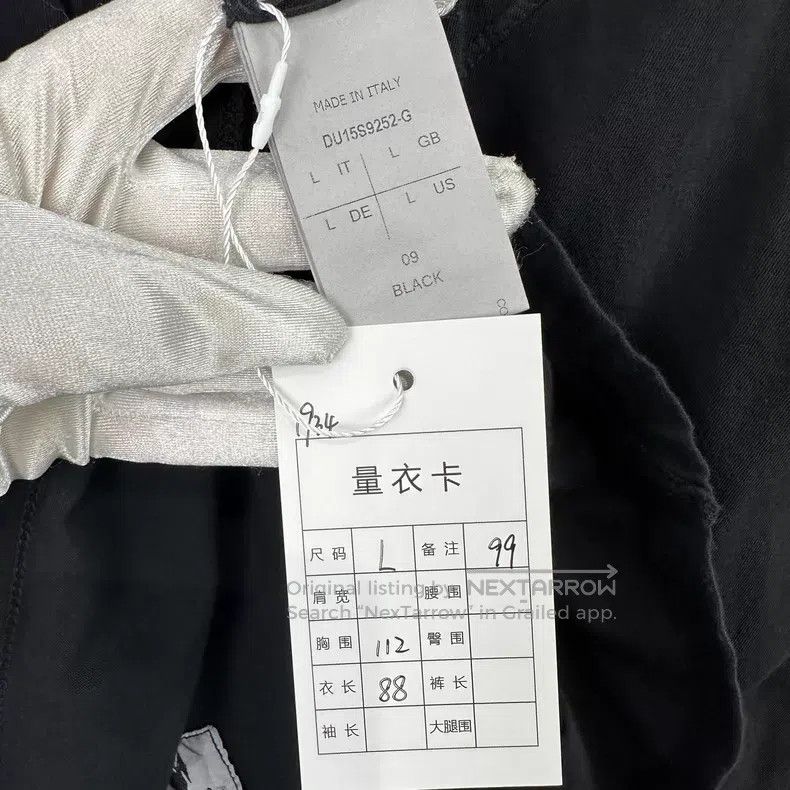 MADE IN ITALY
DU15S9252-G
L IT L GB
L DE L US
09
BLACK
8
量衣卡
尺码 L 备注 99
肩宽 腰围
Original listing by NEXTARROW
Search “NexTarrow” in Grailed app.
胸围 112 臀围
衣长 88 裤长
袖长 大腿围